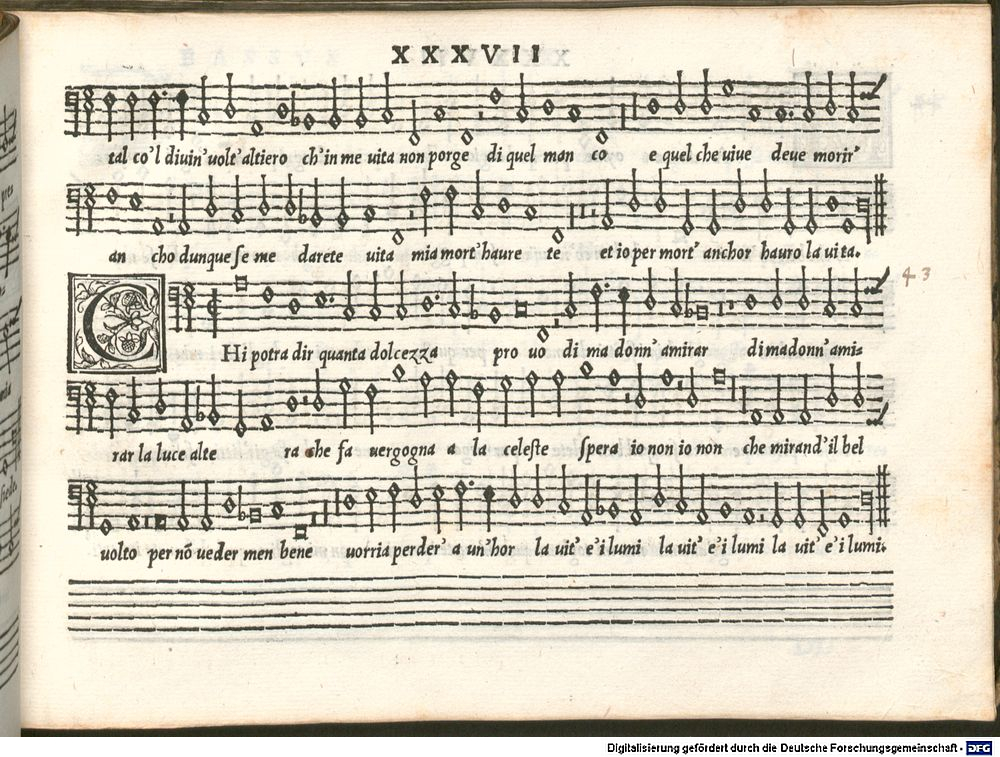 XXXVII
tal co'l diuin' uolt' altiero ch'in me uita non porge di quel man co e quel che uiue deue morir'
an cho dunque se me darete uita mia mort' haure te et io per mort' anchor hauro la uita.
43
C
Hi potra dir quanta dolcezza pro uo di ma donn' amirar di madonn' ami=
rar la luce alte ra che fa uergogna a la celeste spera io non io non che mirand' il bel
uolto per nõ ueder men bene uorria perder' a un'hor la uit' e'i lumi la uit' e'i lumi la uit' e'i lumi.
pres
Digitalisierung gefördert durch die Deutsche Forschungsgemeinschaft - DFG